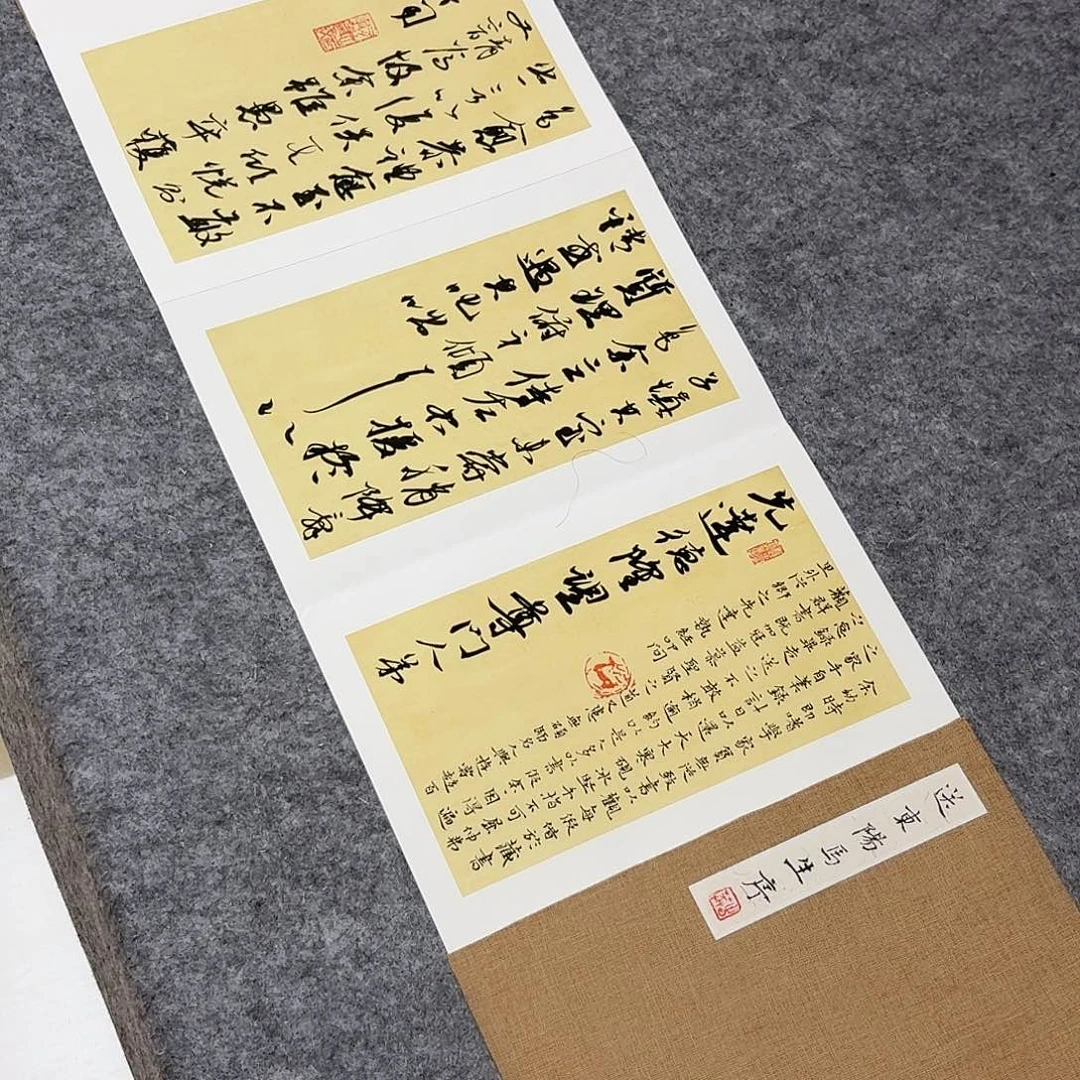 送東陽馬生序
余幼時即嗜學家貧無從致書以觀每假於藏書
之家手自筆錄計日以還天大寒硯冰堅手指不可屈伸弗
之怠錄畢走送之不敢稍逾約以是人多以書假余因得遍
觀群書既加冠益慕聖賢之道又患無碩師名人與遊嘗趨百
里外從鄉之先達執經叩問
先達德隆望尊門人弟
子填其室未嘗稍降辭
色余立侍左右援疑
質理俯身傾耳以
請或遇其叱咄
色愈恭禮愈至不敢
出一言以復俟其欣悅則
又請焉故余雖愚卒獲
聞